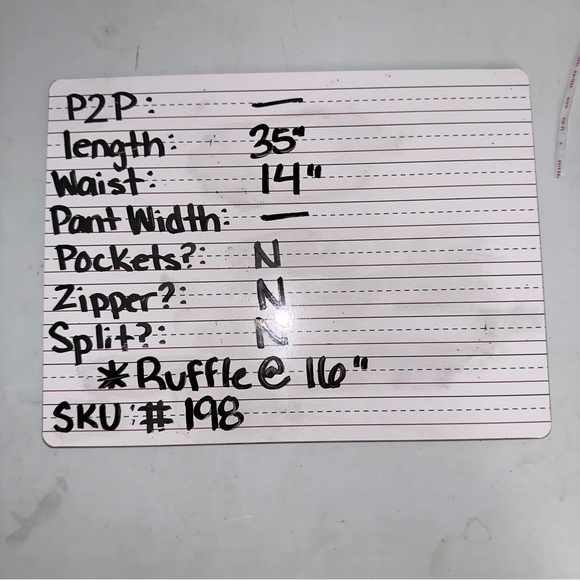 P2P: —
length: 35"
Waist: 14"
Pant Width: —
Pockets?: N
Zipper?: N
Split?: N
*Ruffle @ 16"
SKU:# 198